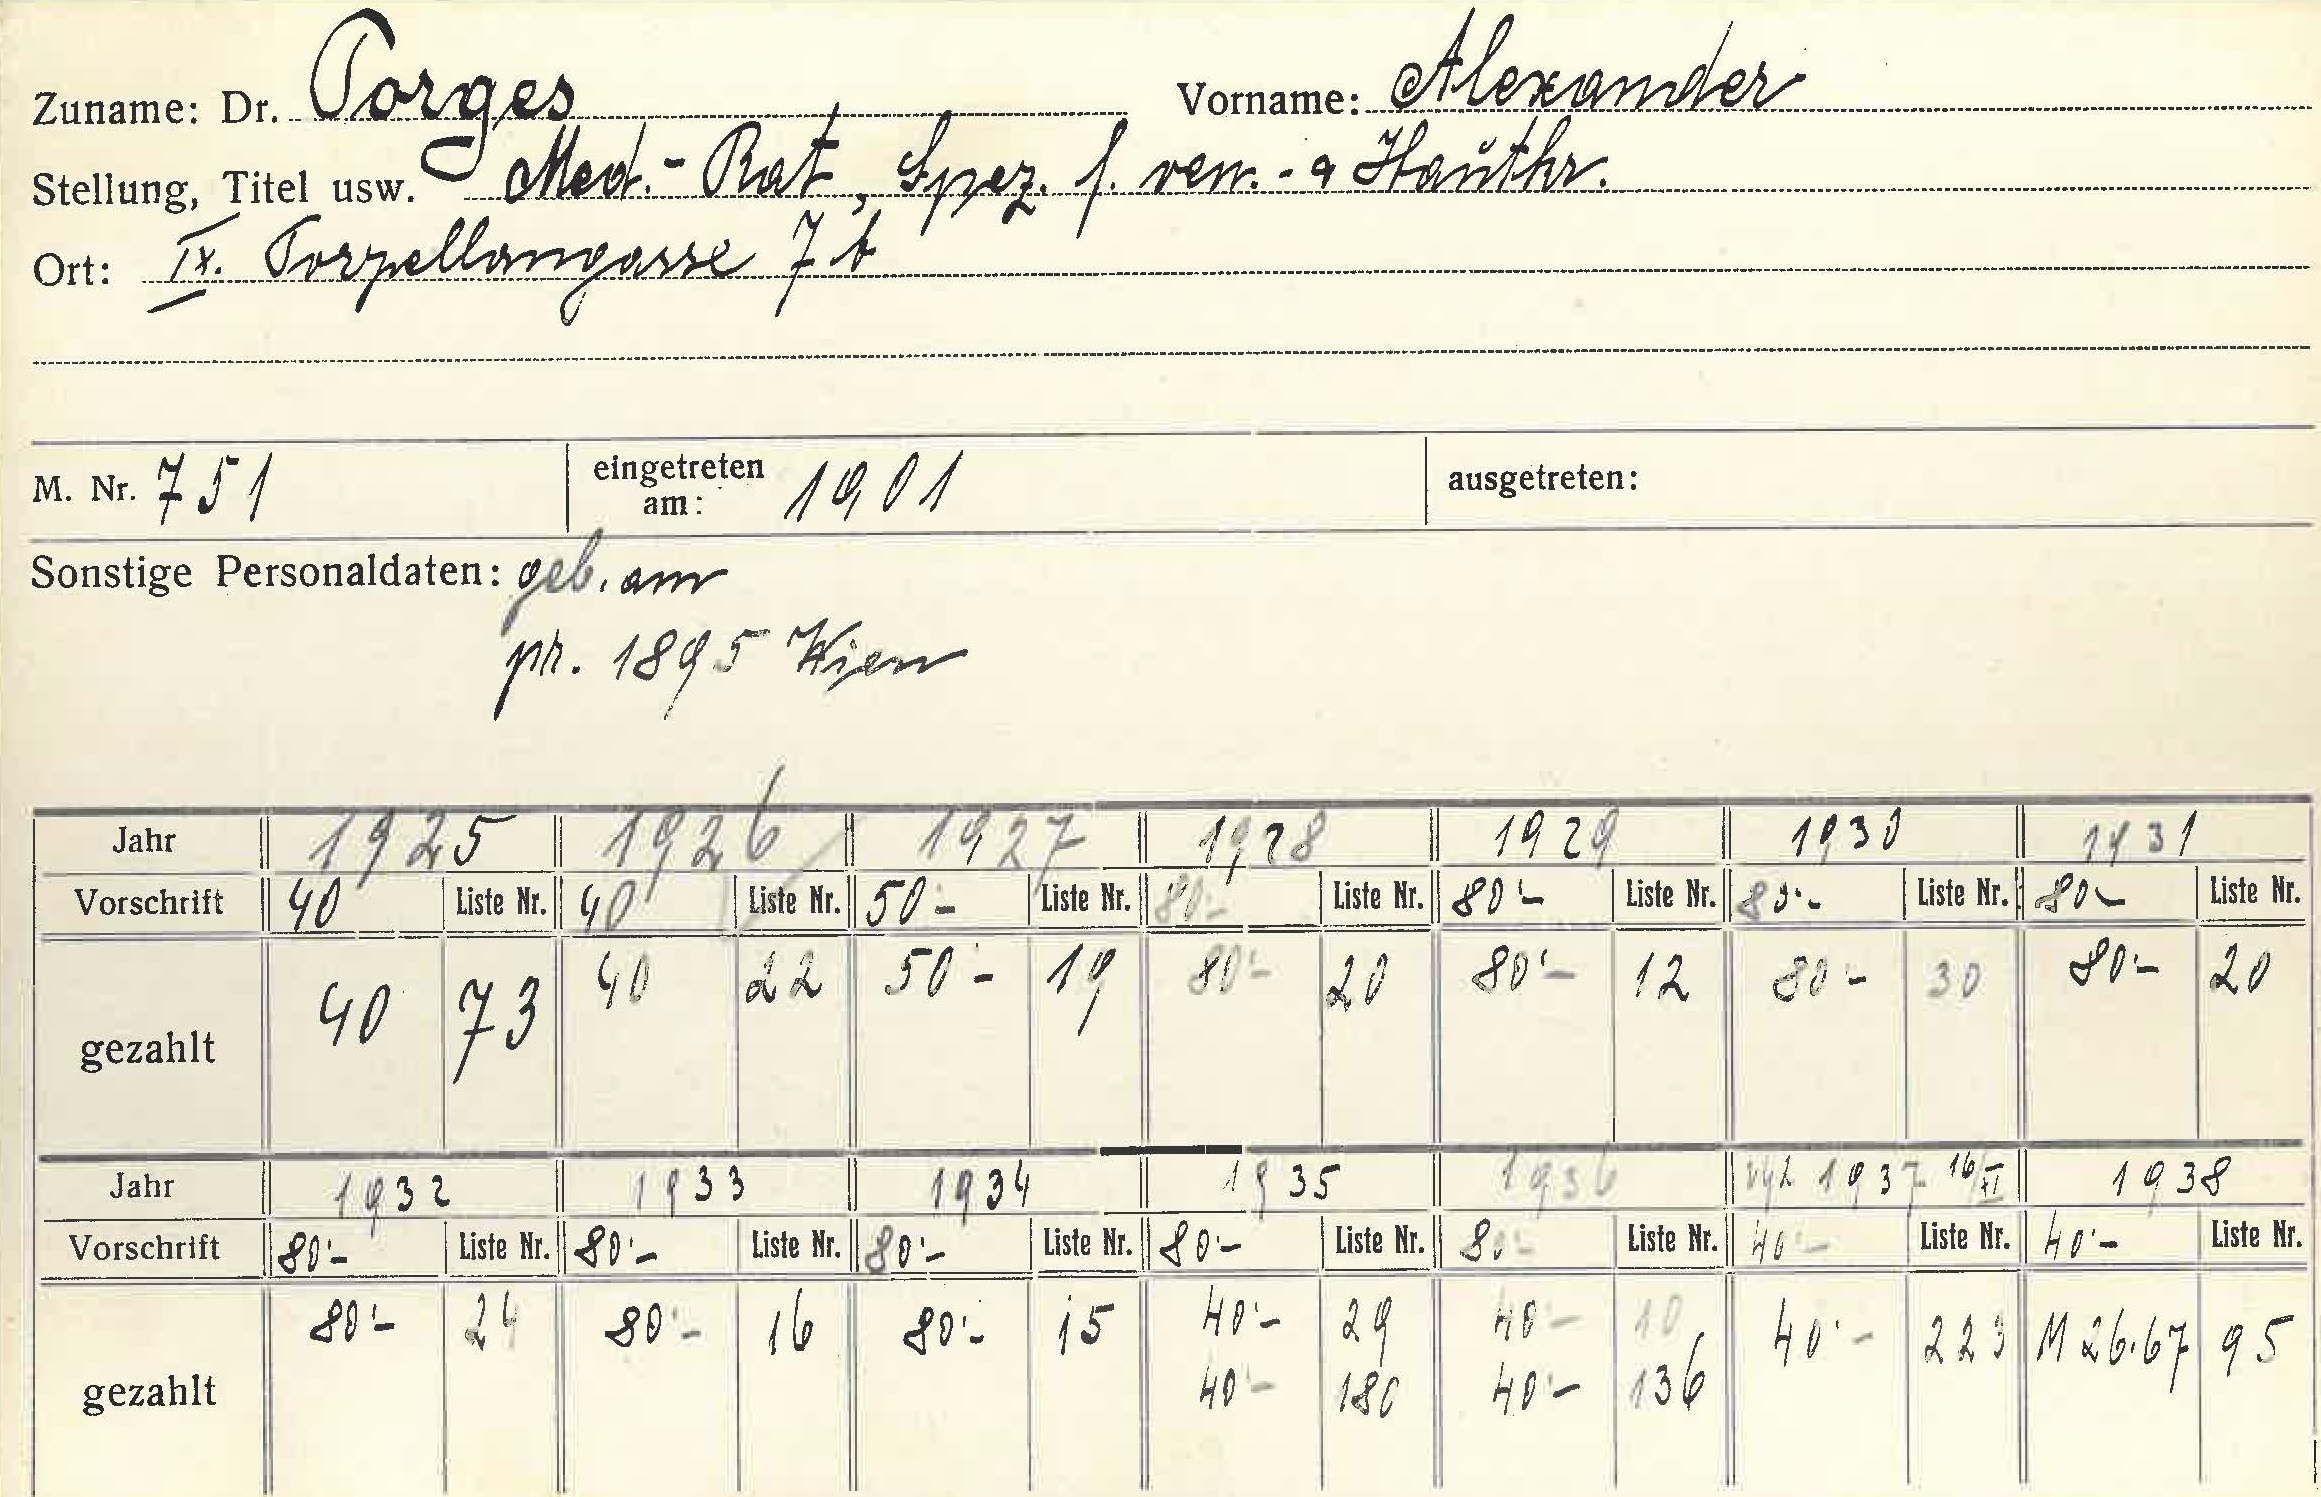 Zuname: Dr. Porges Vorname: Alexander
Stellung, Titel usw. Med.-Rat, Spez. f. ven.- u Hautkr.
Ort: IX. Porzellangasse 7b
M. Nr. 751 eingetreten am: 1901 ausgetreten:
Sonstige Personaldaten: geb. am
pr. 1895 Wien
Jahr 1925 1926 1927 1928 1929 1930 1931
Vorschrift 40 Liste Nr. 40 Liste Nr. 50.- Liste Nr. 80.- Liste Nr. 80.- Liste Nr. 80.- Liste Nr. 80.- Liste Nr.
gezahlt 40 73 40 22 50.- 19 80.- 20 80.- 12 80.- 30 80.- 20
Jahr 1932 1933 1934 1935 1936 1937 16/VI 1938
Vorschrift 80.- Liste Nr. 80.- Liste Nr. 80.- Liste Nr. 80.- Liste Nr. 80.- Liste Nr. 40.- Liste Nr. 40.- Liste Nr.
gezahlt 80.- 24 80.- 16 80.- 15 40.- 29 40.- 10 40.- 223 M 26.67 95
40.- 180 40.- 136